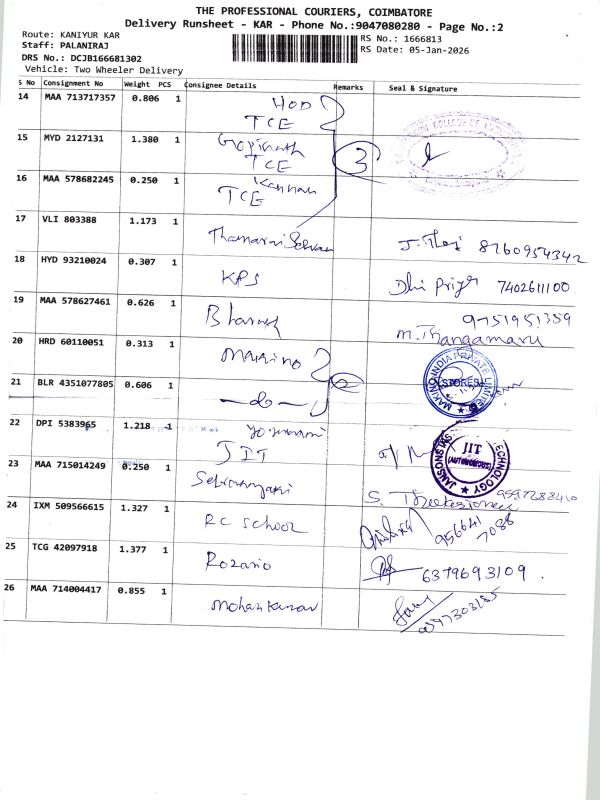 THE PROFESSIONAL COURIERS, COIMBATORE
Delivery Runsheet - KAR - Phone No.:9047080280 - Page No.:2
Route: KANIYUR KAR
Staff: PALANIRAJ
DRS No.: DCJB166681302
Vehicle: Two Wheeler Delivery
RS No.: 1666813
RS Date: 05-Jan-2026
S No Consignment No Weight PCS Consignee Details Remarks Seal & Signature
14 MAA 713717357 0.806 1 HOD
TCE
15 MYD 2127131 1.380 1 Gopinath
TCE 3
16 MAA 578682245 0.250 1 Kannan
TCE
17 VLI 803388 1.173 1 Thamarai Selvan 8760954342
18 HYD 93210024 0.307 1 KPS Dhi Priya 7402611100
19 MAA 578627461 0.626 1 Bharath 9751951359
M. Thangamaru
20 HRD 60110051 0.313 1 Makino MAKINO INDIA PRIVATE LIMITED
STORES
21 BLR 4351077805 0.606 1
22 DPI 5383965 1.218 1
JIT JIT
(AUTONOMOUS)
TECHNOLOGY
23 MAA 715014249 0.250 1
24 IXM 509566615 1.327 1 RC School 956641
7088
25 TCG 42097918 1.377 1 Rozario 6379693109.
26 MAA 714004417 0.855 1 Mohan Kumar